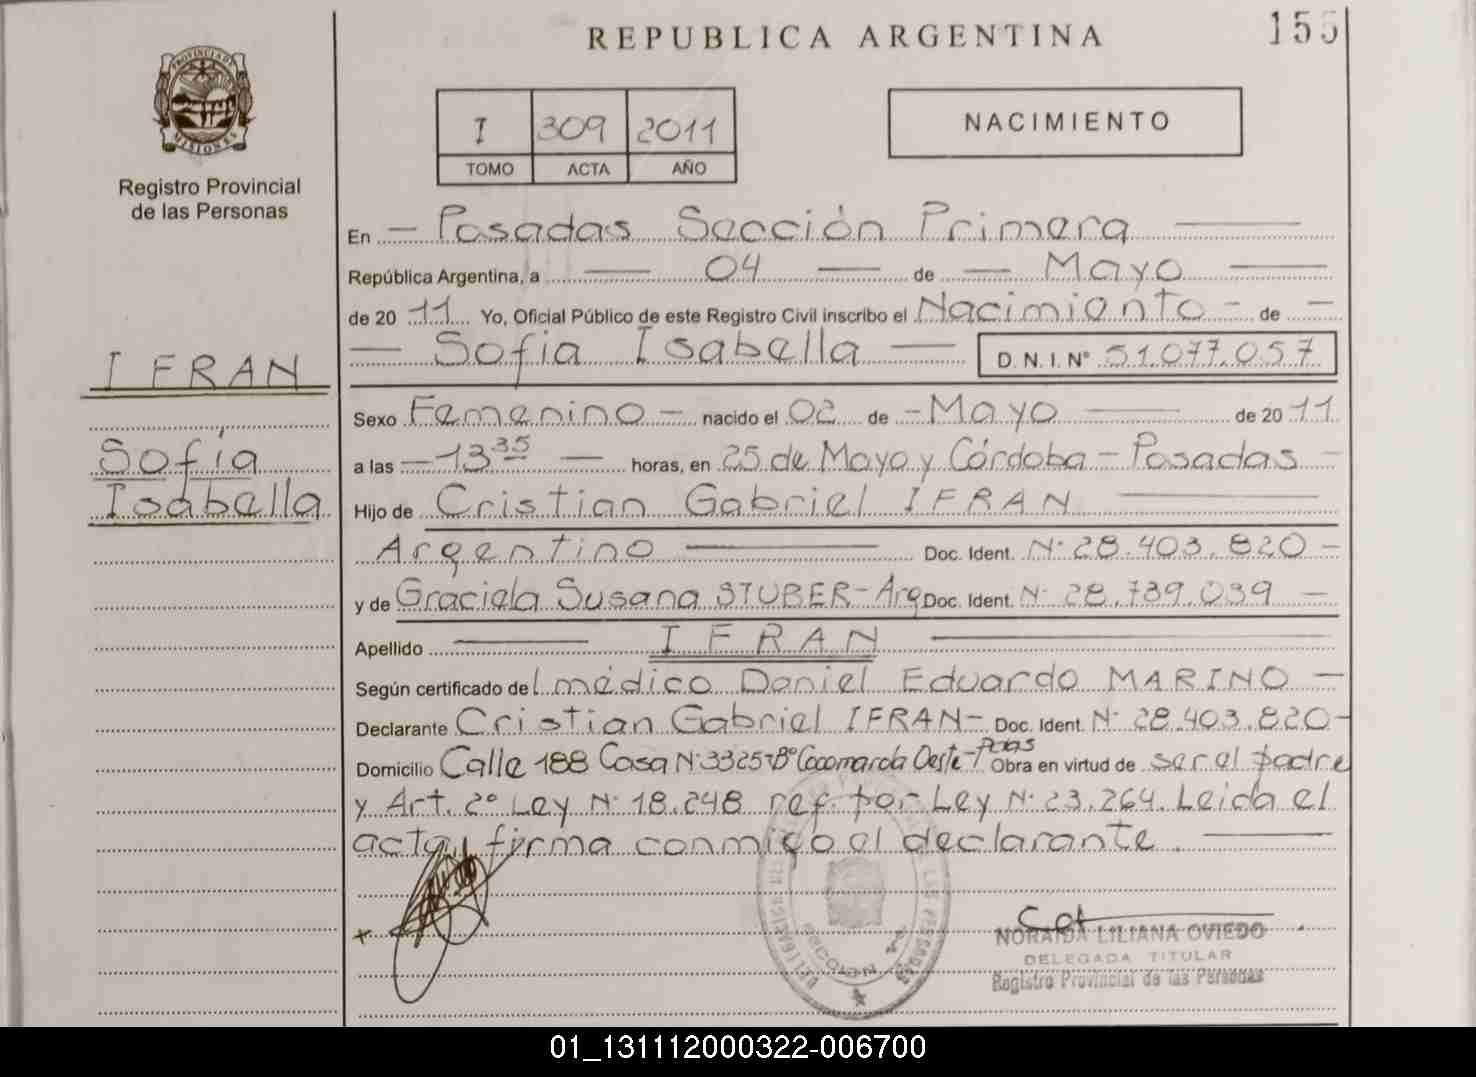 REPUBLICA ARGENTINA
155
PROVINCIA DE MISIONES
Registro Provincial
de las Personas
I 309 2011
TOMO ACTA AÑO
NACIMIENTO
En - Posadas Sección Primera
República Argentina, a 04 de Mayo
de 20 11 Yo, Oficial Público de este Registro Civil inscribo el Nacimiento - de -
Sofía Isabella D. N. I. N° 51.077.057
IFRAN
Sofía
Isabella
Sexo Femenino - nacido el 02 de - Mayo de 20 11
a las - 13 35 - horas, en 25 de Mayo y Córdoba - Posadas -
Hijo de Cristian Gabriel IFRAN
Argentino Doc. Ident. N° 28.403.820 -
y de Graciela Susana STUBER - Arg Doc. Ident. N° 28.739.039 -
Apellido IFRAN
Según certificado del médico Daniel Eduardo MARINO -
Declarante Cristian Gabriel IFRAN - Doc. Ident. N° 28.403.820 -
Domicilio Calle 188 Casa N° 3325 - B° Cocomarola Oeste - Pdas Obra en virtud de ser el padre
y Art. 2° Ley N° 18.248 ref. por Ley N° 23.264. Leída el
acta, firma conmigo el declarante.
SECCION 1a
NORAIDA LILIANA OVIEDO
DELEGADA TITULAR
Registro Provincial de las Personas
01_131112000322-006700